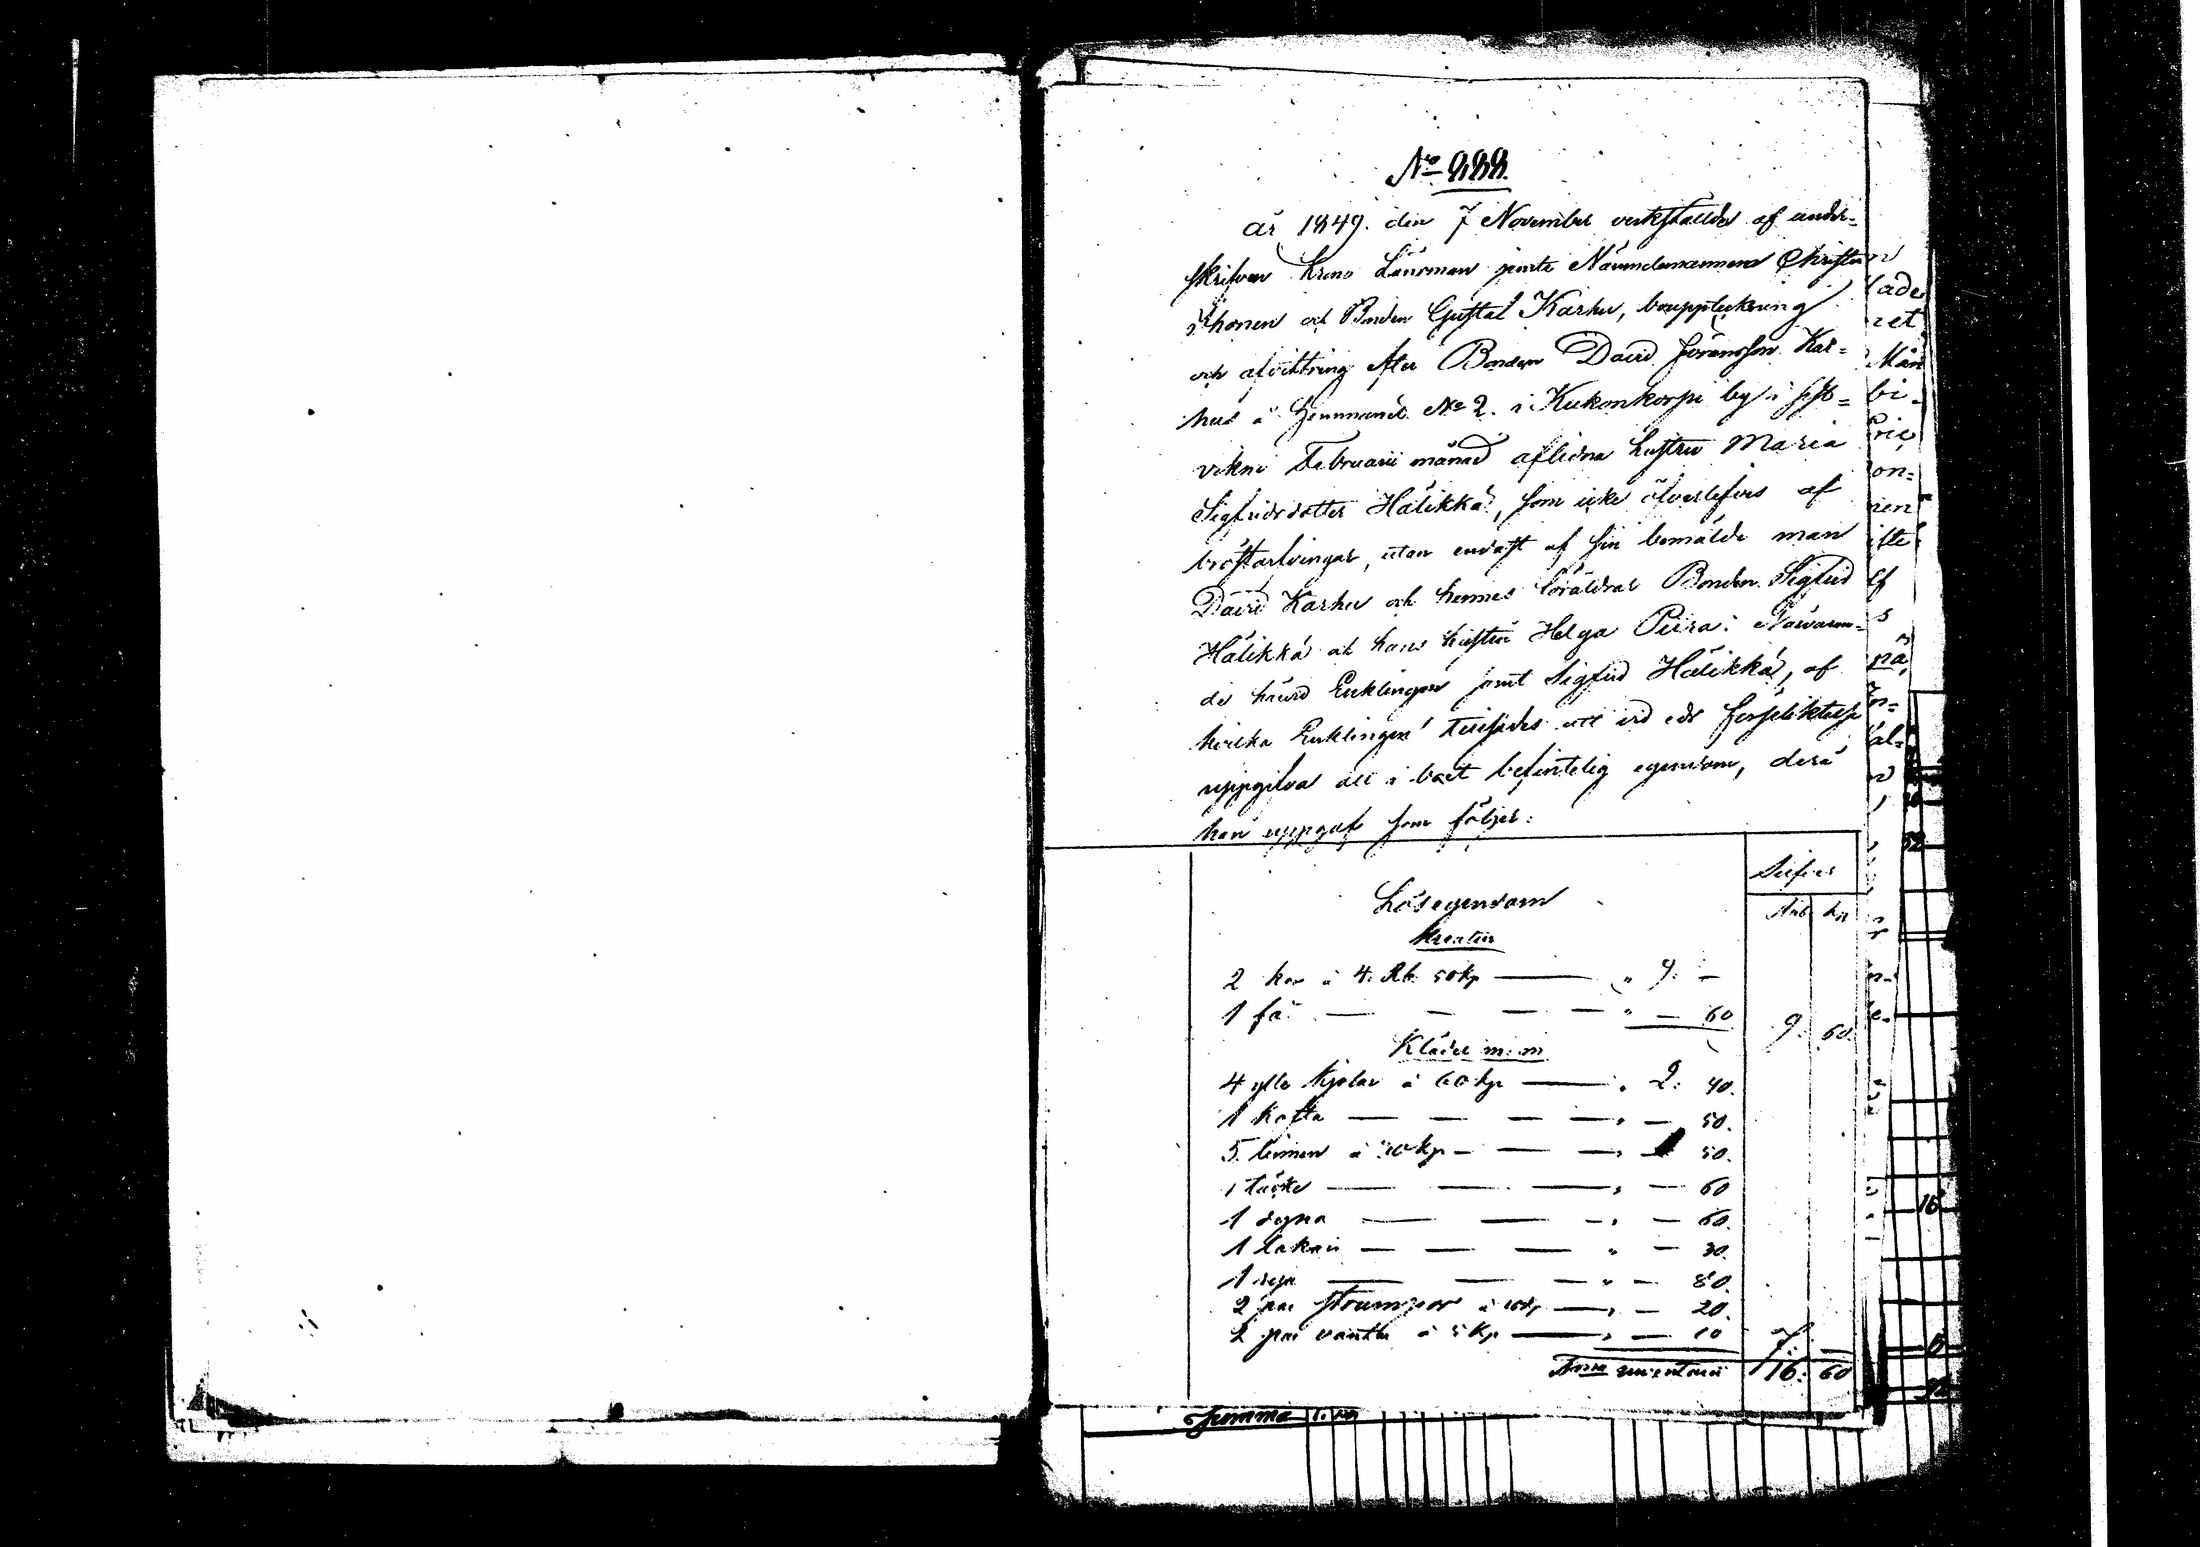 No 888.
år 1849. den 7 November verkställdes af under-
skrifven krono Länsman jemte Nämndemannen Christer
Ihonen och Bonden Gustaf Karhu, bouppteckning
och afvittring efter Bonden David Göransson Kar-
hus å hemmanet No 2. i Kukonkorpi by i sist-
vekne Februarii månad aflidna hustru Maria
Sigfridsdotter Hälikkä, som icke öfverlefves af
bröstarfvingar, utan endast af sin bemälde man
David Karhu och hennes föräldrar Bonden Sigfrid
Hälikkä och hans hustru Helga Pirra: Närvaran-
de härvid Enklingen samt Sigfrid Hälikkä, af
hvilka Enklingen tillsades att vid eds förpliktelse
uppgifva all i boet befintelig egendom, den
han uppgaf som följer:
Silfver
Lösegendom Rub. kp
Kreatur
2 kor à 4. Rb. 50 kp — " 9. —
1 får — — — — " — 60 9. 60.
Kläder m. m
4 ylle kjolar à 60 kp — " 2. 40.
1 kofta — — — — " — 50.
5. linnen à 30 kp — — — " 1 50.
1 täcke — — — " — 60
1 dyna — — — " — 60.
1 lakan — — — " — 30.
1 rya — — — " — 80.
2 par strumpor à 10 kp — " — 20.
2 par vantar à 5 kp — " — 10 7. —
Summa inventarii 16. 60
Summa